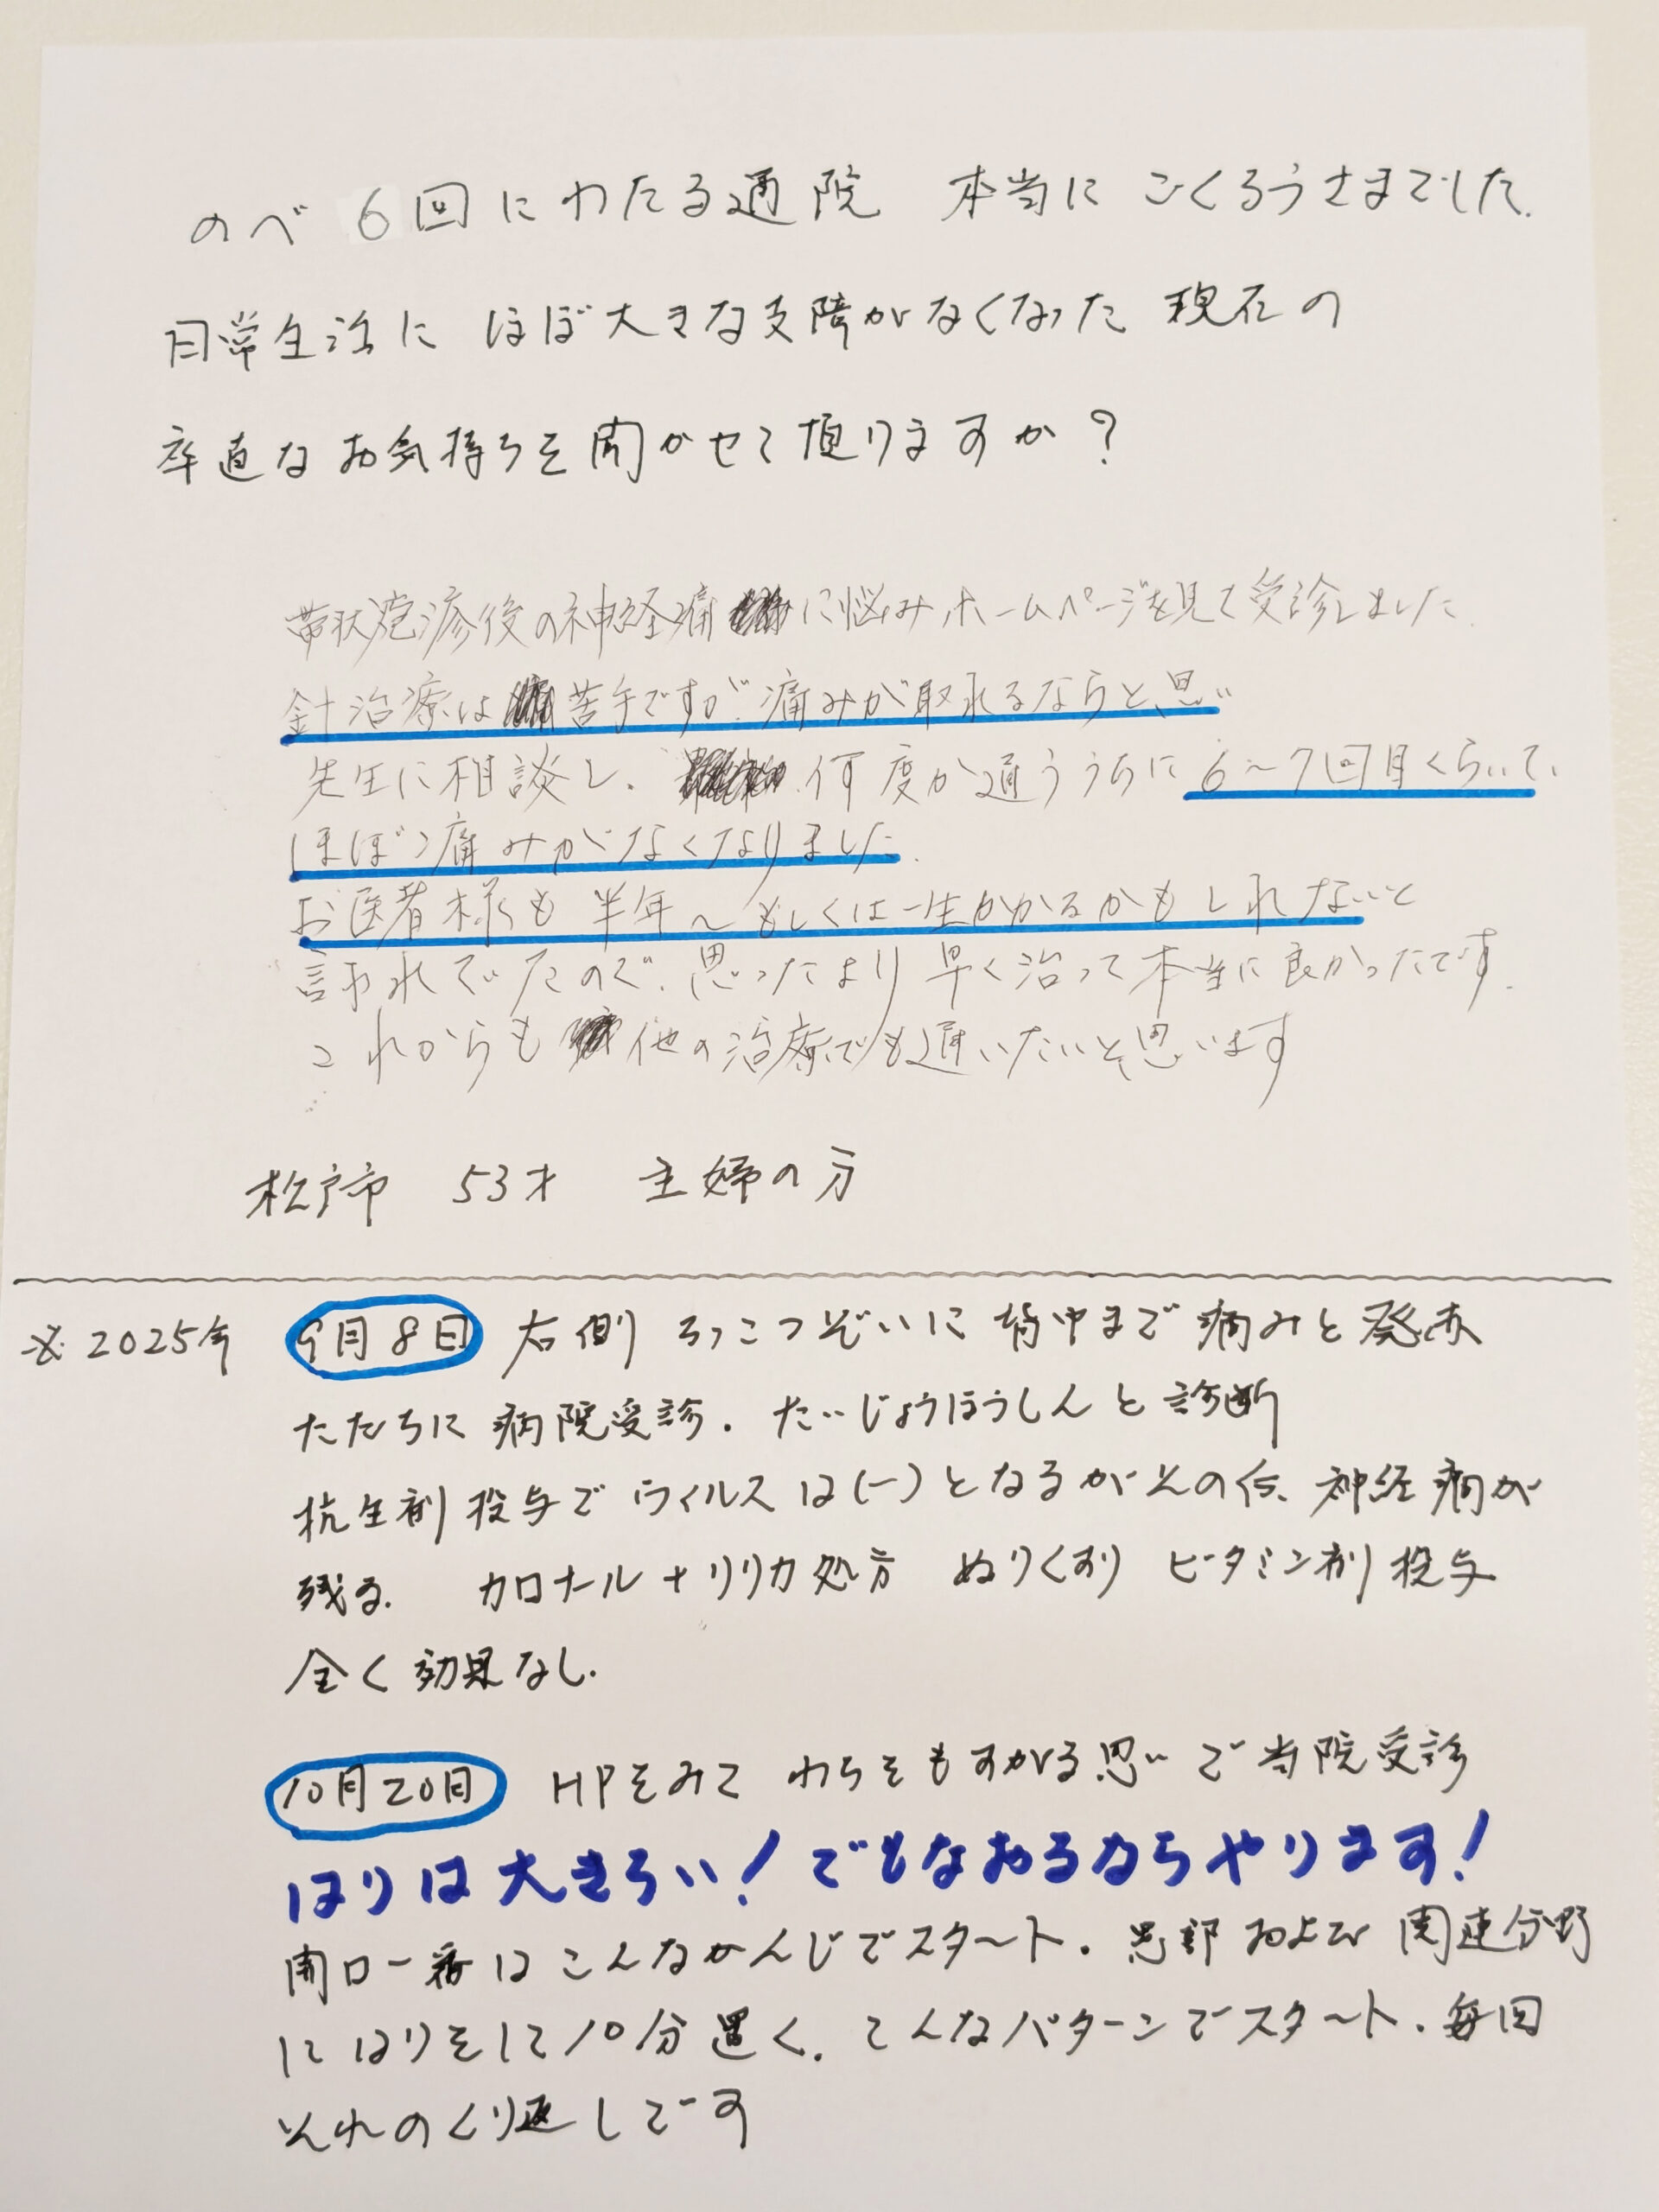 のべ 6回にわたる通院 本当に ごくろうさまでした.
日常生活に ほぼ大きな支障がなくなった 現在の
率直な お気持ちを聞かせて頂けますか?
帯状疱疹後の神経痛に悩み、ホームページを見て受診しました.
針治療は苦手ですが、痛みが取れるならと、思い
先生に相談し、何度か通ううちに 6〜7回目くらいで、
ほぼ痛みがなくなりました.
お医者様も 半年〜もしくは一生かかるかもしれないと
言われていたので、思ったより早く治って本当に良かったです.
これからも 他の治療でも通いたいと思います
松戸市 53才 主婦の方
※ 2025年 9月8日 右側 ろっこつぞいに 背中まで 痛みと発赤
ただちに 病院受診. たいじょうほうしんと診断
抗生剤投与で ウィルスは(−)となるがその後、神経痛が
残る. カロナール+リリカ処方 ぬりくすり ビタミン剤投与
全く効果なし.
10月20日 HPをみて わらをもすがる思いで当院受診
はりは大きらい! でもなおるならやります!
開口一番は こんなかんじでスタート. 患部および関連分野
にはりをして10分置く. こんなパターンでスタート. 毎回
それのくり返しです